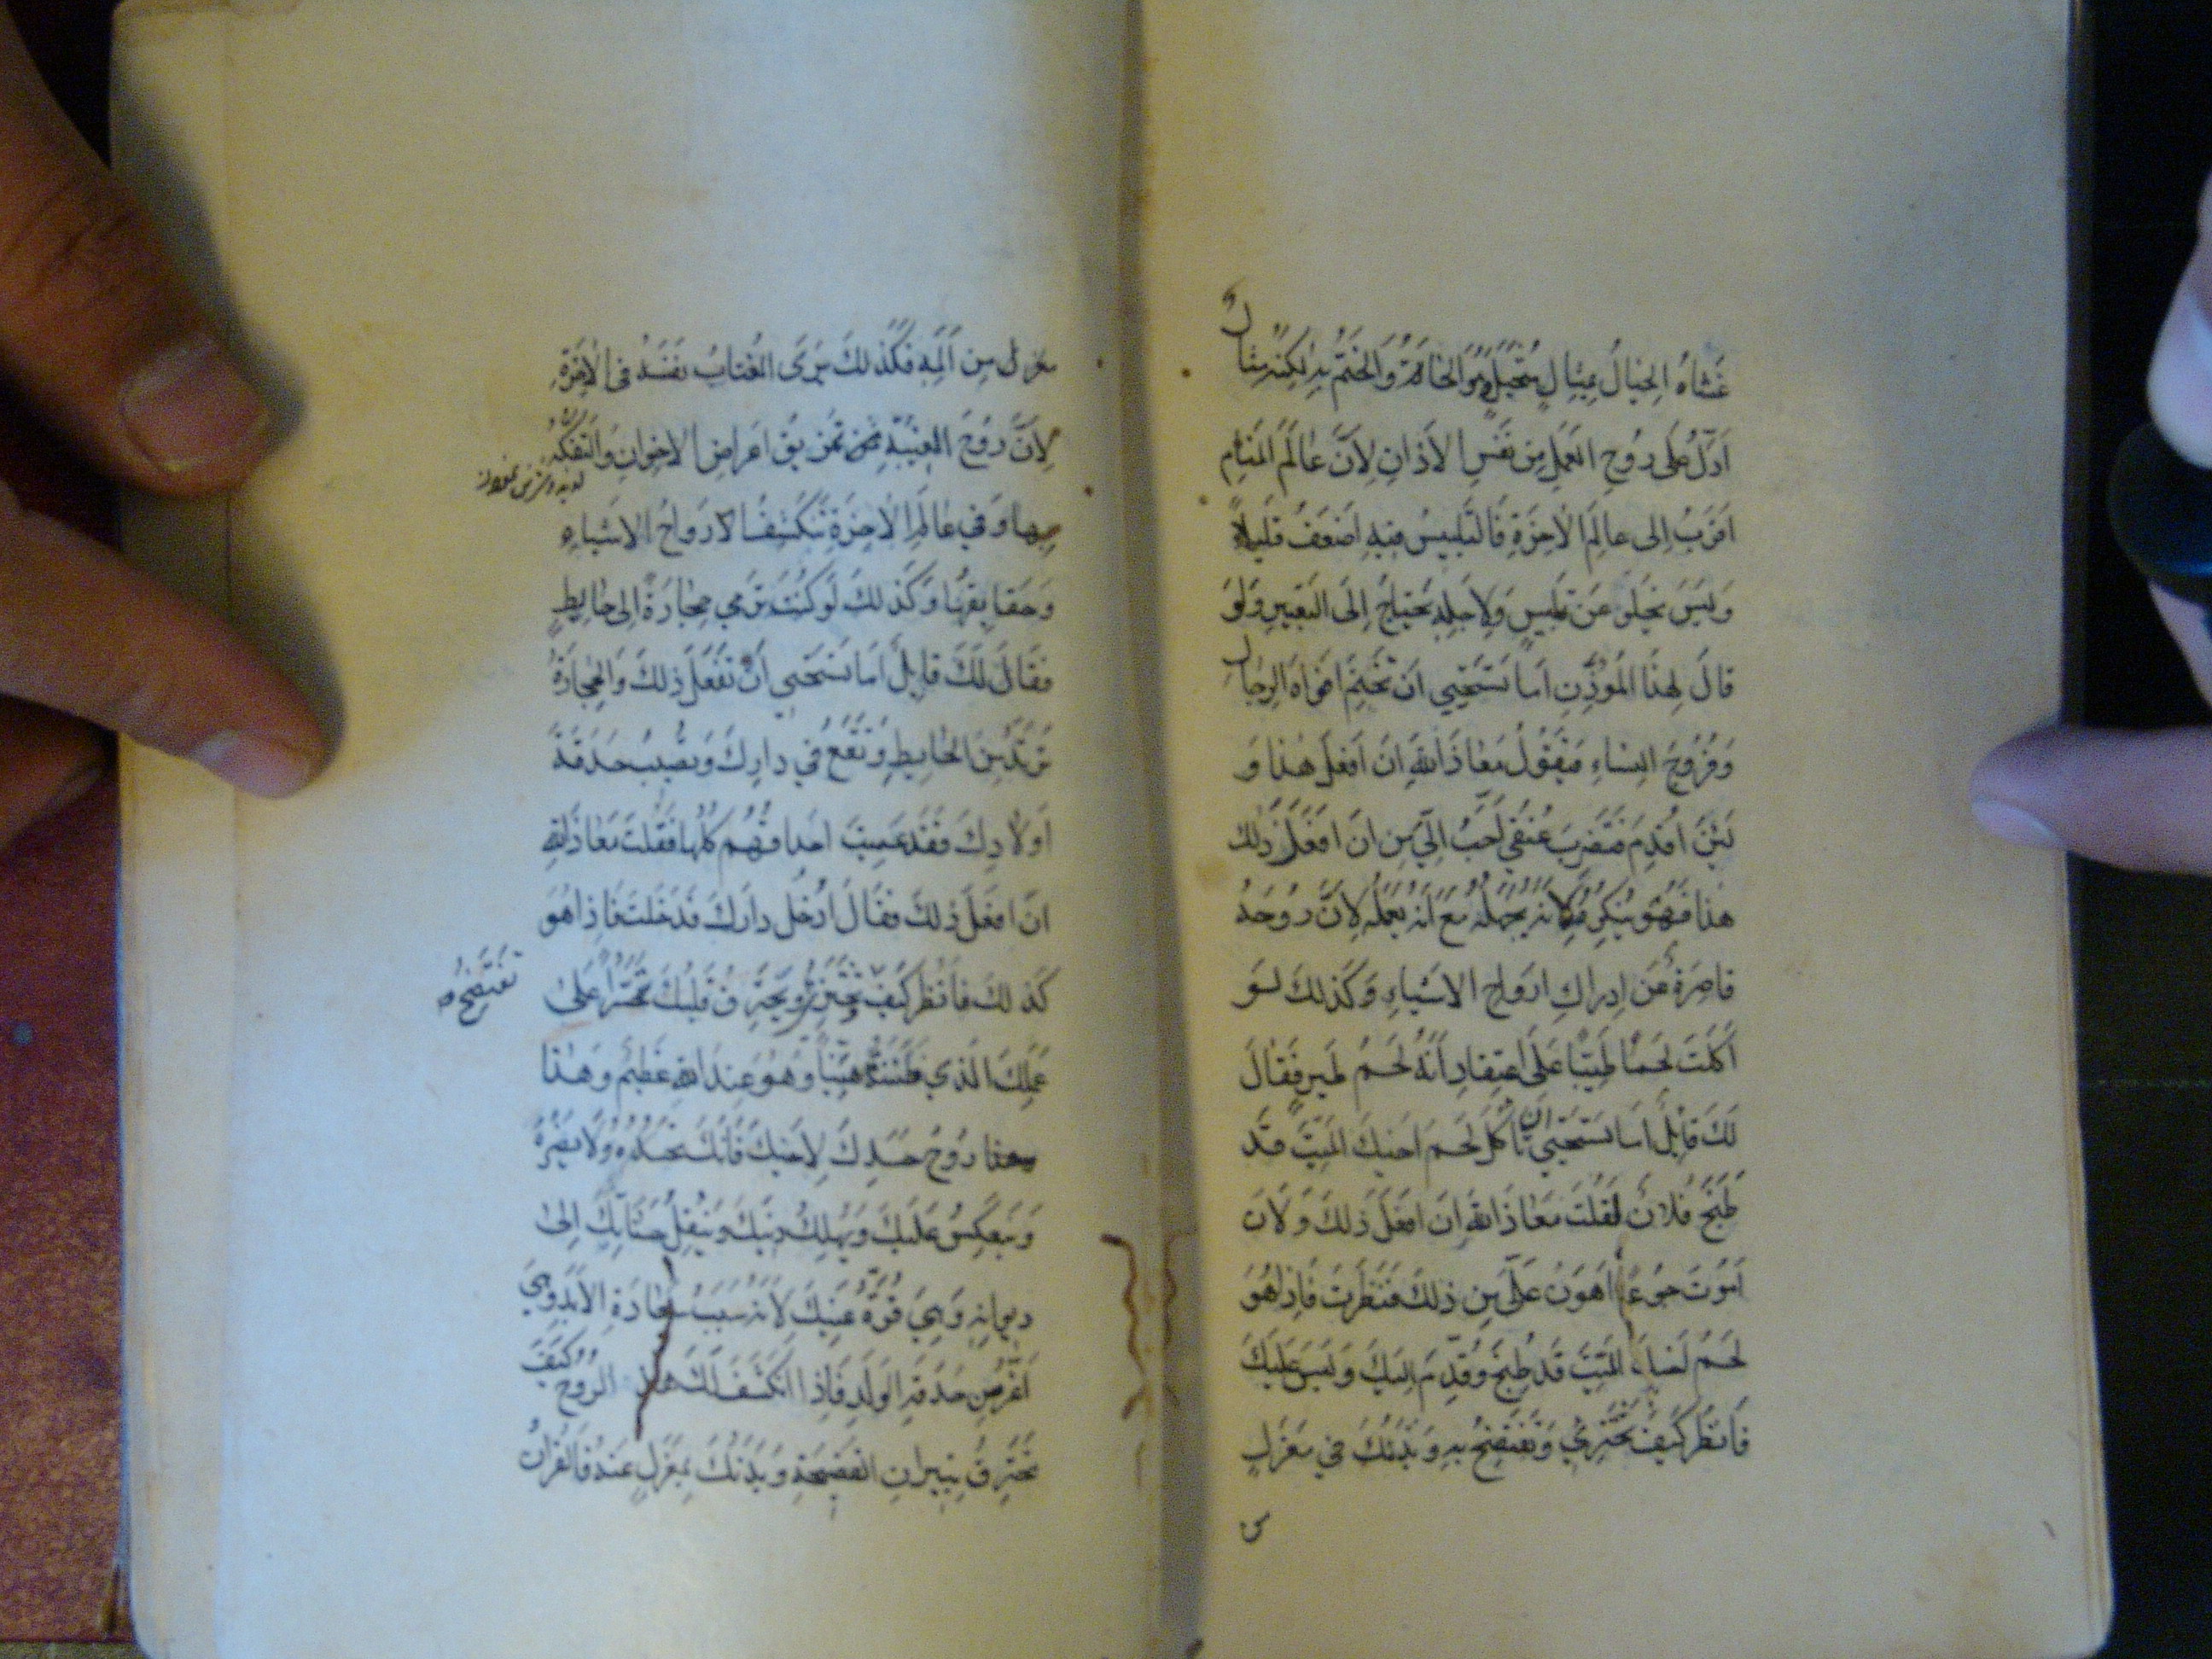 غشاه الخيال بمثال متخيل هو الخاتم والختم به لكنه مثال
ادل على روح العمل من نفس الاذان لان عالم المنام
اقرب الى عالم الاخرة فالتلبيس فيه اضعف قليلا
وليس يخلو عن تلبيس ولاجله يحتاج الى التعبير ولو
قال لهذا الموذن اما تستحيي ان تختم افواه الرجال
وفروج النساء فيقول معاذ الله ان افعل هذا و
لئن اقدم فتضرب عنقي احب الي من ان افعل ذلك
هذا فهو ينكره لانه يجهله مع انه يعمله لان روحه
قاصرة عن ادراك ارواح الاشياء وكذلك لو
اكلت لحما طيبا على اعتقاد انه لحم طير فقال
لك قايل اما تستحيي ان تاكل لحم اخيك الميت قد
طبخ فلان لقلت معاذ الله ان افعل ذلك ولان
اموت جوعا اهون علي من ذلك فنظرت فاذا هو
لحم اخيك الميت قد طبخ وقدم اليك ولبس عليك
فانظر كيف تختزي وتفتضح به وبدنك في معزل
من
معزل من المه فكذلك يرى المغتاب نفسه في الاخرة
لان روح الغيبة تمزيق اعراض الاخوان والتفكه
بها وفي عالم الاخرة تنكشف ارواح الاشياء
وحقايقها وكذلك لو كنت ترمي حجارة الى حايط
فقال لك قايل اما تستحيي ان تفعل ذلك والحجارة
ترتد من الحايط وتقع في دارك وتصيب حدقة
اولادك فقد عميت احداقهم كلها فقلت معاذ الله
ان افعل ذلك فقال ادخل دارك فدخلت فاذا هو
كذلك فانظر كيف تختزي ويحترق قلبك تحسرا على
تفتضح
عملك الذي ظننته هينا وهو عند الله عظيم وهذا
روح حسدك لاخيك فانك تحسده ولا يضره
وينعكس عليك ويهلك دينك وينقل حسناتك الى
ديوانه وهي قرة عينك لانه سبب سعادة الابد وهي
اعز من حدقة الولد فاذا انكشف لك هذه الروح وكيف
تحترق بنيران الفضيحة وبدنك بمعزل عنه فالقران